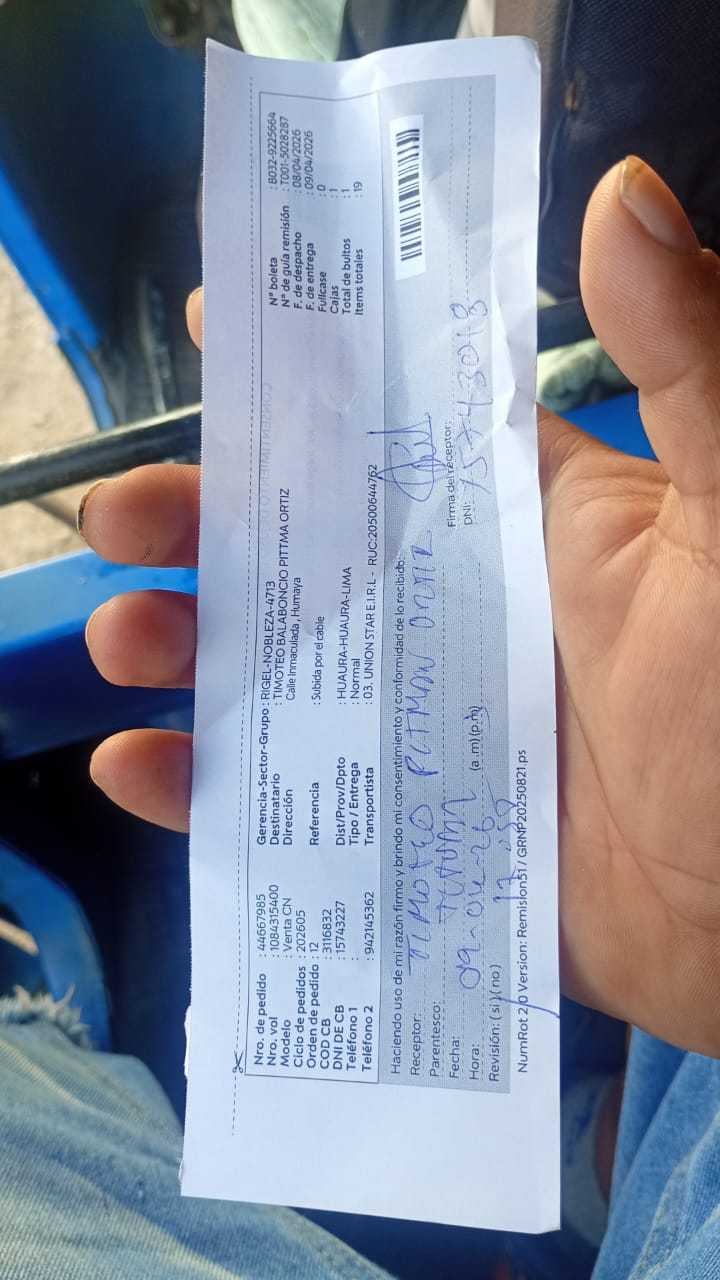 Nro. de pedido : 44667985
Nro. vol : 1084315400
Modelo : Venta CN
Ciclo de pedidos : 202605
Orden de pedido : 12
COD CB : 3116832
DNI DE CB : 15743227
Teléfono 1 :
Teléfono 2 : 942145362
Gerencia-Sector-Grupo : RIGEL-NOBLEZA-4713
Destinatario : TIMOTEO BALABONCIO PITTMA ORTIZ
Dirección Calle Inmaculada , Humaya
Referencia : Subida por el cable
Dist/Prov/Dpto : HUAURA-HUAURA-LIMA
Tipo / Entrega : Normal
Transportista : 03. UNION STAR E.I.R.L - RUC:20500644762
N° boleta : B032-9225664
N° de guía remisión : T001-5028287
F. de despacho : 08/04/2026
F. de entrega : 09/04/2026
Fullcase : 0
Cajas : 1
Total de bultos : 1
Items totales : 19
Haciendo uso de mi razón firmo y brindo mi consentimiento y conformidad de lo recibido:
Receptor: TIMOTEO PITMAN ORTIZ
Parentesco: TITULAR
Fecha: 09-04-26
Hora: (a.m)(p.m)
Revisión: (si)(no)
Firma del receptor:
DNI: 15743018
NumRot 2.0 Version: Remision51/ GRNP20250821.ps